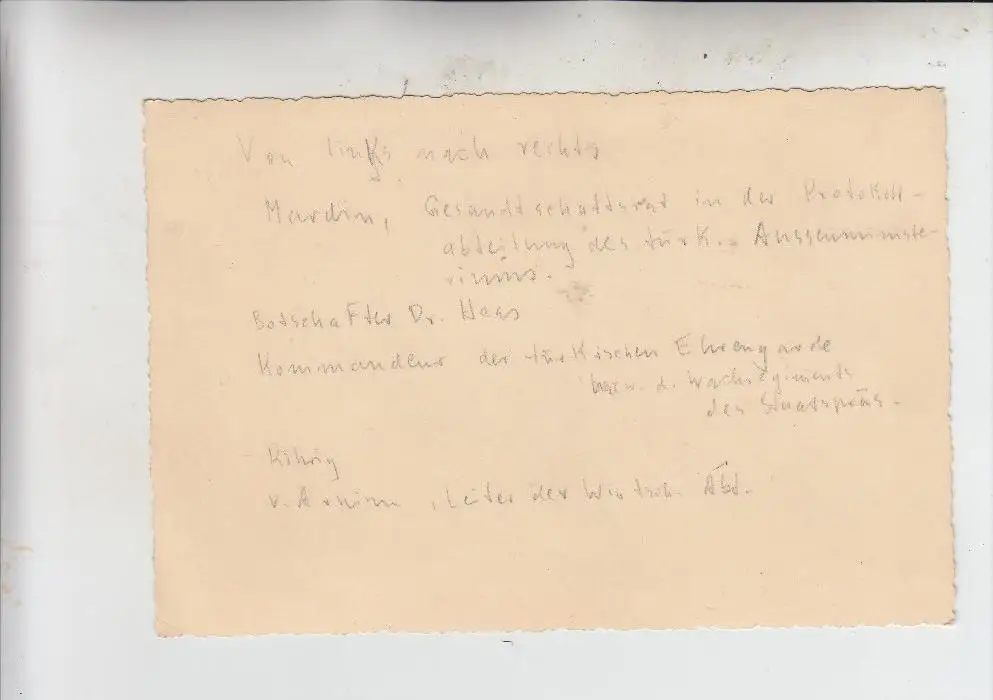 Von links nach rechts
Mardin, Gesandtschaftsrat in der Protokoll-
abteilung des türk. Aussenministe-
riums.
Botschafter Dr. Haas
Kommandeur der türkischen Ehrengarde
bezw. d. Wachregiments
des Staatspräs.
v. Arnim, Leiter der Wirtsch. Abt.